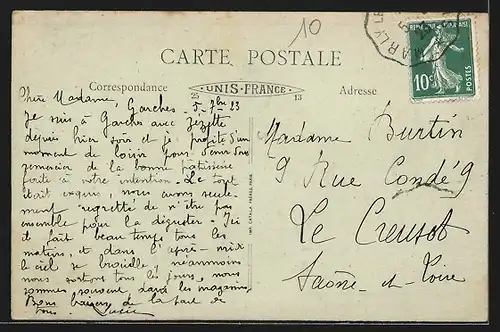 10
MARLY LE
CARTE POSTALE
10c
Correspondance
25 UNIS-FRANCE 13
Adresse
Chère Madame, Garches - 5-7bre 23
Je suis à Garches avec Zezette
depuis hier soir et je profite d'un
moment de loisir pour venir vous
remercier de la bonne pâtisserie
faite à notre intention. Le tout
était exquis, nous avons seule-
ment regretté de n'être pas
ensemble pour la déguster. Ici
il fait beau temps tous les
matins, et dans l'après-midi
le ciel se brouille, néanmoins
nous sortons tous les jours, nous
sommes souvent dans les magasins.
Bons baisers de la part de
tous.
IMP. CATALA FRÈRES, PARIS
Madame Burtin
9 Rue Condé 9
Le Creusot
Saône-et-Loire